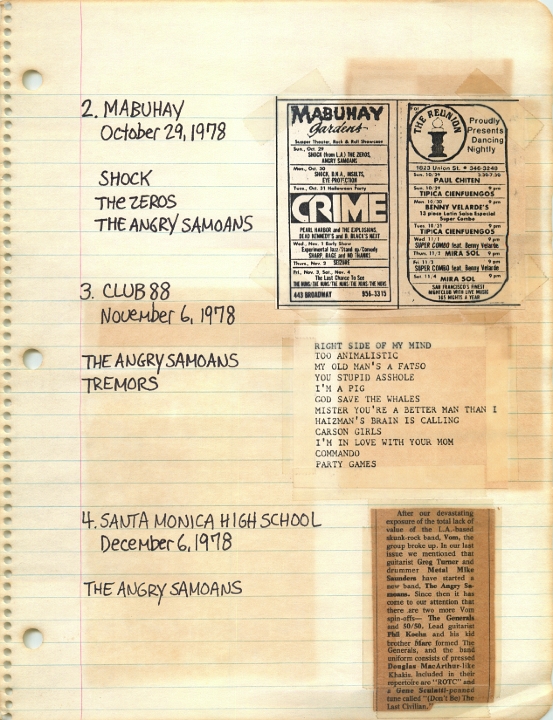 2. MABUHAY
October 29, 1978
SHOCK
THE ZEROS
THE ANGRY SAMOANS
MABUHAY
Gardens
Supper Theater, Rock & Roll Showcase
Sun., Oct. 29
SHOCK (from L.A.) THE ZEROS,
ANGRY SAMOANS
Mon., Oct. 30
SHOCK, D.N.A., INSULTS,
EYE PROTECTION
Tue., Oct. 31 Halloween Party
CRIME
PEARL HARBOR and THE EXPLOSIONS,
DEAD KENNEDY'S and D. BLACK'S NEXT
Wed., Nov. 1 Early Show
Experimental Jazz/Stand up/Comedy
SHARP, RAGE and NO THANKS
Thu., Nov. 2 SEIZURE
Fri., Nov. 3, Sat., Nov. 4
The Last Chance to See
THE NUNS/THE NUNS/THE NUNS/THE NUNS
443 BROADWAY 956-3315
THE REUNION
Proudly
Presents
Dancing
Nightly
1823 Union St. • 346-3248
Sun. 10/29
PAUL CHITEN
Sun. 10/29 9 pm
TIPICA CIENFUEGOS
Mon. 10/30 9 pm
BENNY VELARDE'S
13 piece Latin Salsa Especial
Super Combo
Tues. 10/31 9 pm
TIPICA CIENFUEGOS
Wed. 11/1 9 pm
SUPER COMBO feat. Benny Velarde
Thu. 11/2 MIRA SOL 9 pm
Fri. 11/3 9 pm
SUPER COMBO feat. Benny Velarde
Sat. 11/4 MIRA SOL 9 pm
SAN FRANCISCO'S FINEST
NIGHTCLUB WITH LIVE MUSIC
365 NIGHTS A YEAR
3. CLUB 88
November 6, 1978
THE ANGRY SAMOANS
TREMORS
RIGHT SIDE OF MY MIND
TOO ANIMALISTIC
MY OLD MAN'S A FATSO
YOU STUPID ASSHOLE
I'M A PIG
GOD SAVE THE WHALES
MISTER YOU'RE A BETTER MAN THAN I
HAIZMAN'S BRAIN IS CALLING
CARSON GIRLS
I'M IN LOVE WITH YOUR MOM
COMMANDO
PARTY GAMES
4. SANTA MONICA HIGH SCHOOL
December 6, 1978
THE ANGRY SAMOANS
After our devastating
exposure of the total lack of
value of the L.A.-based
skunk-rock band, Vom, the
group broke up. In our last
issue we mentioned that
guitarist Greg Turner and
drummer Metal Mike
Saunders have started a
new band, The Angry Sa-
moans. Since then it has
come to our attention that
there are two more Vom
spin-offs— The Generals
and 50/50. Lead guitarist
Phil Koehn and his kid
brother Marc formed The
Generals, and the band
uniform consists of pressed
Douglas MacArthur-like
Khakis. Included in their
repertoire are "ROTC" and
a Gene Sculatti-penned
tune called "(Don't Be) The
Last Civilian."